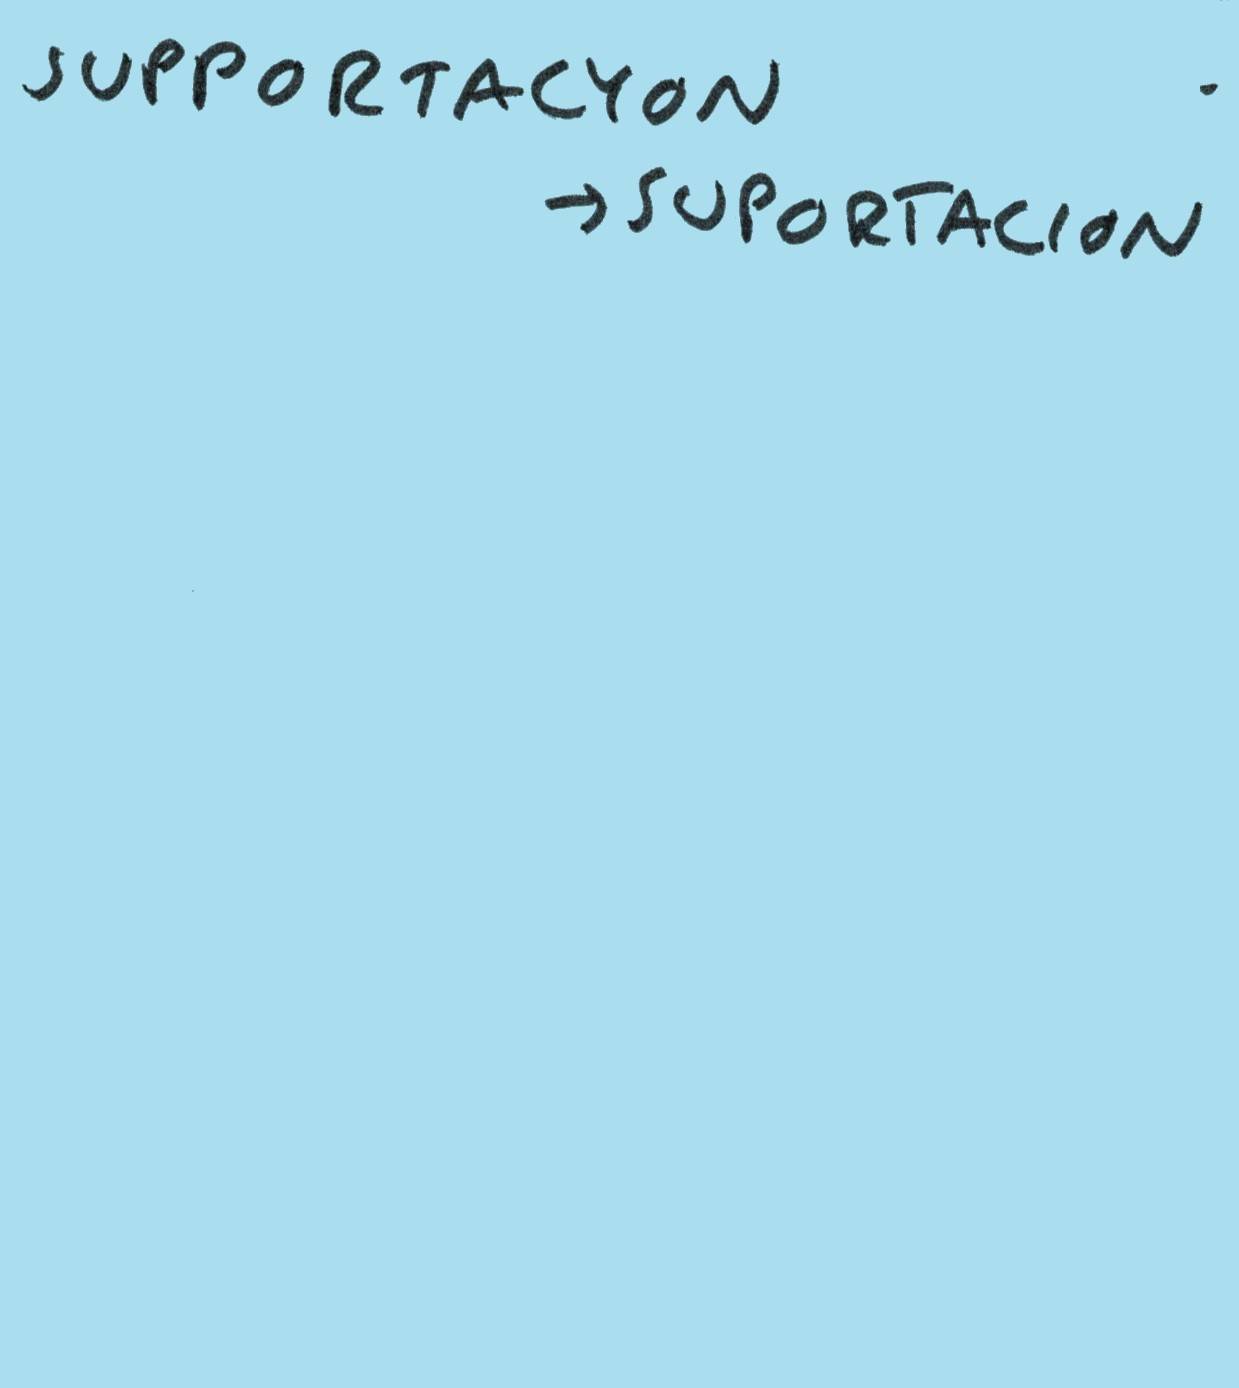 SUPPORTACYON
→ SUPORTACION